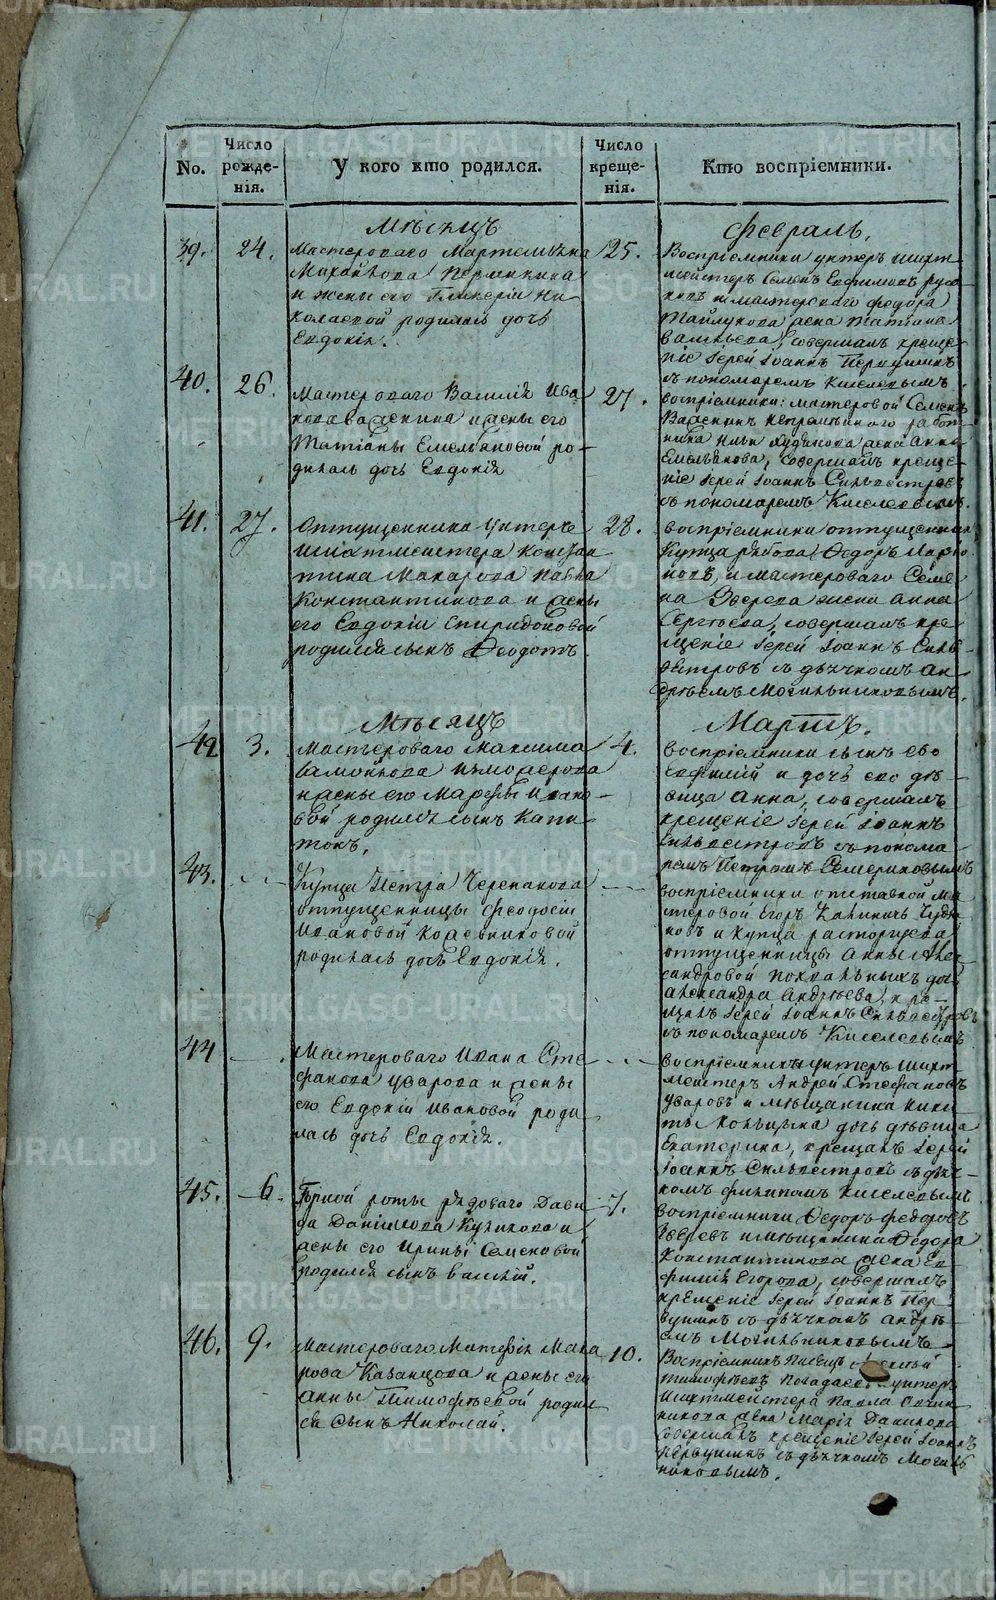 No.
Число рожденія.
У кого кто родился.
Число крещенія.
Кто воспріемники.
Мѣсяцъ
Февраль.
39.
24.
Мастероваго
Михайлова Пермикина
и жены его Гликеріи Ни-
колаевой родилась дочь
Евдокія.
25.
Воспріемники унтеръ шихт-
мейстеръ Семенъ Евфимовъ
и мастероваго Федора
жена Татiана
совершалъ креще-
ніе Іерей Іоаннъ Первушинъ
съ пономаремъ Киселевымъ.
40.
26.
Мастероваго Василія Ива-
нова и жены его
Татіаны Емельяновой ро-
дилась дочь Евдокія
27.
воспріемники: мастеровой Семенъ
непремѣннаго работ-
ника жена Анна
Емельянова, совершалъ креще-
ніе Іерей Іоаннъ Сильвестровъ
съ пономаремъ Киселевымъ.
41.
27.
Отпущенника унтеръ
шихтмейстера Констан-
тина Макарова Павла
Константинова и жены
его Евдокіи Спиридоновой
родился сынъ Ѳеодотъ
28.
воспріемники отпущенникъ
Купца Рябова Ѳедоръ
и мастероваго Семе-
на Зверева жена Анна
Сергѣева, совершалъ кре-
щеніе Іерей Іоаннъ Силь-
вестровъ съ дьячкомъ Ан-
дрѣемъ Могильниковымъ.
Мѣсяцъ
Мартъ.
42
3.
Мастероваго Максима
Самойлова
и жены его Марѳы Ивано-
вой родился сынъ Капи-
тонъ.
4.
воспріемники сынъ его
Евфимій и дочь его дѣ-
вица Анна, совершалъ
крещеніе Іерей Іоаннъ
Сильвестровъ съ понома-
ремъ Петромъ
43.
Купца Петра Черепанова
отпущенницы Феодосіи
Ивановой Кожевниковой
родилась дочь Евдокія.
воспріемники отставной ма-
стеровой Егоръ
и Купца Расторгуева
отпущенницы Анны Алек-
сандровой дочь
Александра Андрѣева, кре-
щалъ Іерей Іоаннъ Сильвестровъ
съ пономаремъ Киселевымъ
44
Мастероваго Ивана Сте-
фанова Уварова и жены
его Евдокіи Ивановой роди-
лась дочь Евдокія.
воспріемникъ унтеръ шихт-
мейстеръ Андрей Стефановъ
Уваровъ и мѣщанина Ники-
ты дочь дѣвица
Екатерина, крещалъ Іерей
Іоаннъ Сильвестровъ съ дьяч-
комъ Филипомъ Киселевымъ
45.
6.
Горной роты рядоваго Дави-
да Данилова Куликова и
жены его Ирины Семеновой
родился сынъ Василій.
7.
воспріемники Ѳедоръ Федоровъ
Зверевъ и мѣщанина Ѳедора
Константинова жена Ев-
фимія Егорова, совершалъ
крещеніе Іерей Іоаннъ Пер-
вушинъ съ дьячкомъ Андрѣ-
емъ Могильниковымъ
46.
9.
Мастероваго Матвѣя Мака-
рова Казанцова и жены его
Анны Тимофѣевой родил-
ся сынъ Николай.
10.
Воспріемникъ писецъ
Тимофѣевъ унтеръ
шихтмейстера Павла Овчин-
никова жена Марія Данилова
совершалъ крещеніе Іерей Іоаннъ
Первушинъ съ дьячкомъ Могиль-
никовымъ.
METRIKI.GASO-URAL.RU